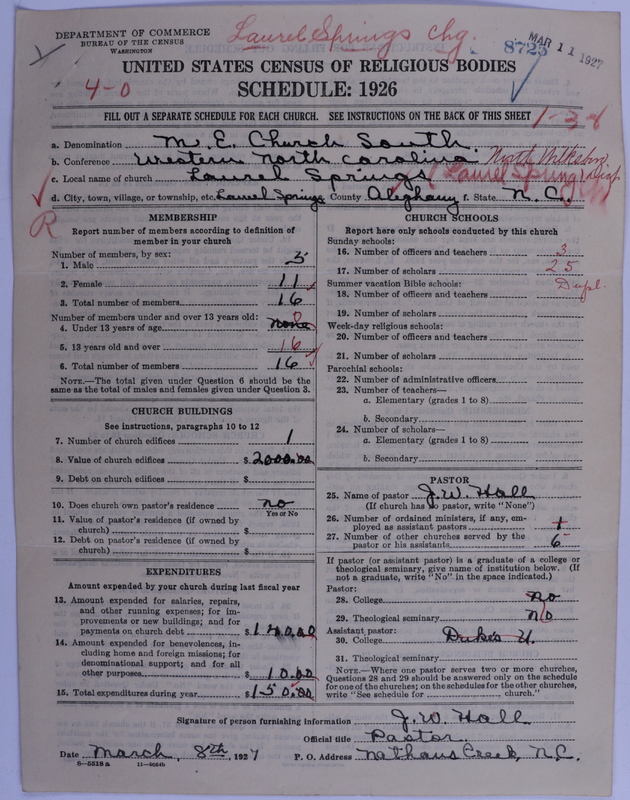 DEPARTMENT OF COMMERCE
BUREAU OF THE CENSUS
WASHINGTON
Laurel Springs Chg.
8725
MAR 11 1927
4-0
UNITED STATES CENSUS OF RELIGIOUS BODIES
SCHEDULE: 1926
FILL OUT A SEPARATE SCHEDULE FOR EACH CHURCH. SEE INSTRUCTIONS ON THE BACK OF THIS SHEET
1-38
a. Denomination M. E. Church South.
b. Conference Western North Carolina North Wilkesboro
c. Local name of church Laurel Springs (Laurel Springs) Dist
d. City, town, village, or township, etc. Laurel Springs County Aleghany f. State N. C.
R
MEMBERSHIP
Report number of members according to definition of member in your church
Number of members, by sex:
1. Male 5
2. Female 11
3. Total number of members 16
Number of members under and over 13 years old:
4. Under 13 years of age none 0
5. 13 years old and over 16
6. Total number of members 16
NOTE.—The total given under Question 6 should be the same as the total of males and females given under Question 3.
CHURCH BUILDINGS
See instructions, paragraphs 10 to 12
7. Number of church edifices 1
8. Value of church edifices $ 2000.00
9. Debt on church edifices $
10. Does church own pastor's residence no
Yes or No
11. Value of pastor's residence (if owned by church) $
12. Debt on pastor's residence (if owned by church) $
EXPENDITURES
Amount expended by your church during last fiscal year
13. Amount expended for salaries, repairs, and other running expenses; for improvements or new buildings; and for payments on church debt $ 140.00
14. Amount expended for benevolences, including home and foreign missions; for denominational support; and for all other purposes $ 10.00
15. Total expenditures during year $ 150.00
CHURCH SCHOOLS
Report here only schools conducted by this church
Sunday schools:
16. Number of officers and teachers 3
17. Number of scholars 25
Summer vacation Bible schools: Dupl.
18. Number of officers and teachers
19. Number of scholars
Week-day religious schools:
20. Number of officers and teachers
21. Number of scholars
Parochial schools:
22. Number of administrative officers
23. Number of teachers—
a. Elementary (grades 1 to 8)
b. Secondary
24. Number of scholars—
a. Elementary (grades 1 to 8)
b. Secondary
PASTOR
25. Name of pastor J. W. Hall
(If church has no pastor, write "None")
26. Number of ordained ministers, if any, employed as assistant pastors 1
27. Number of other churches served by the pastor or his assistants 6
If pastor (or assistant pastor) is a graduate of a college or theological seminary, give name of institution below. (If not a graduate, write "No" in the space indicated.)
Pastor:
28. College no
29. Theological seminary no
Assistant pastor:
30. College Dukes U.
31. Theological seminary
NOTE.—Where one pastor serves two or more churches, Questions 28 and 29 should be answered only on the schedule for one of the churches; on the schedules for the other churches, write "See schedule for church."
Signature of person furnishing information J. W. Hall
Official title Pastor.
Date March 8th, 1927 P. O. Address Nathans Creek, N.C.
8—5518a 11—9054b